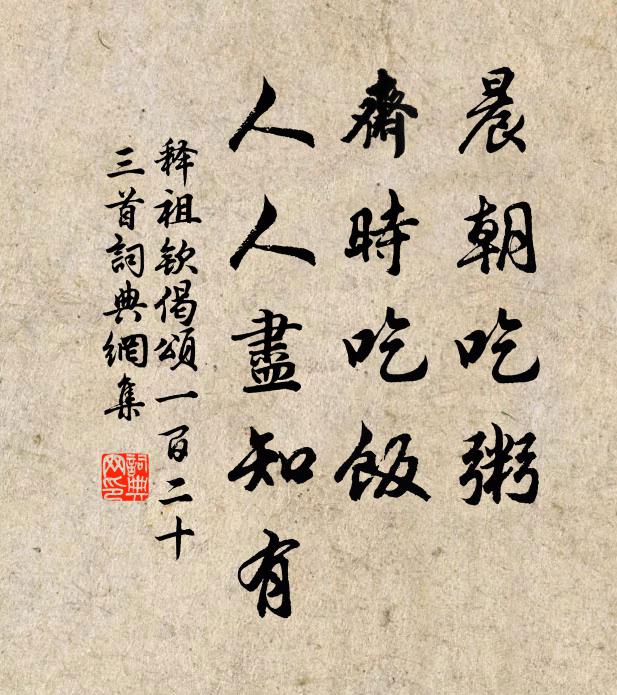 晨朝吃粥
齋時吃飯
人人盡知有
释祖钦偈頌一百二十
三首詞典網集
詞典网印